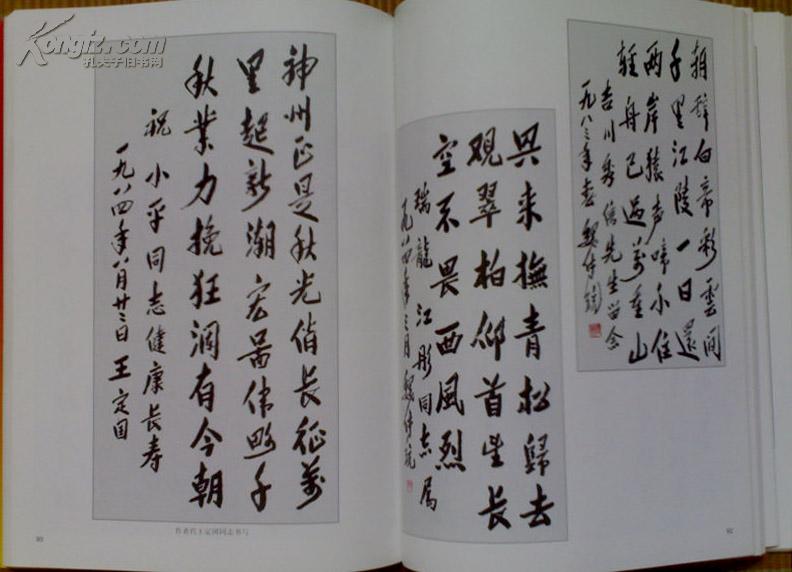 朝辞白帝彩雲间
千里江陵一日還
两岸猿声啼不住
轻舟已过万重山
吉川秀信先生留念
一九八三年春 魏传统
兴来撫青松歸去
观翠柏仰首望长
空不畏西風烈
瑞龍江彤同志属
一九八四年三月 魏传统
神州正是秋光俏长征万
里起新潮宏图伟略千
秋業力挽狂澜有今朝
祝小平同志健康长寿
一九八四年八月廿二日 王定国
作者代王定国同志书写
Kongfz.com
孔夫子旧书网